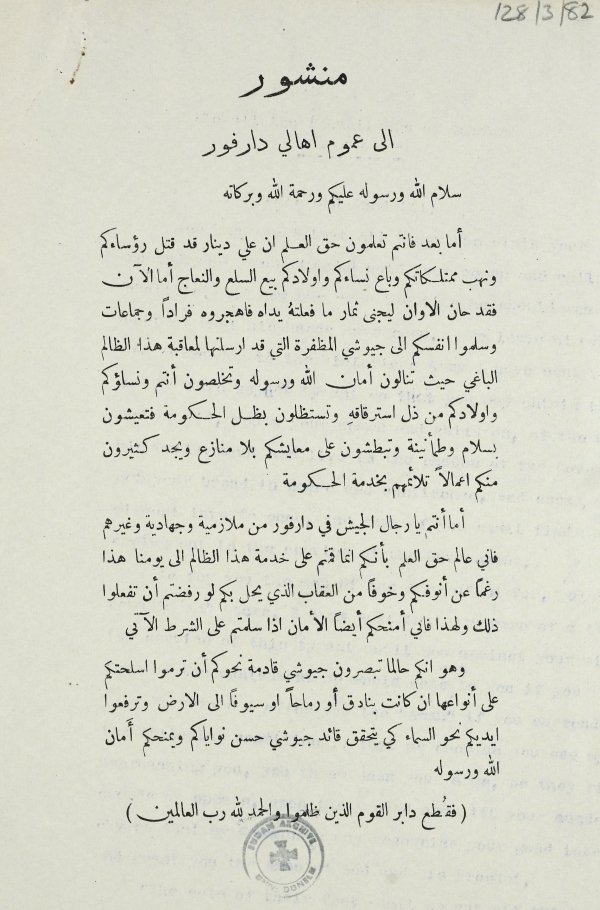 128/3/82
منشور
الى عموم اهالي دارفور
سلام الله ورسوله عليكم ورحمة الله وبركاته
أما بعد فانتم تعلمون حق العلم ان علي دينار قد قتل رؤساءكم
ونهب ممتلكاتكم وباع نساءكم واولادكم بيع السلع والنعاج أما الآن
فقد حان الاوان ليجنى ثمار ما فعلتهُ يداه فاهجروه فراداً وجماعات
وسلموا انفسكم الى جيوشي المظفرة التي قد ارسلتها لمعاقبة هذا الظالم
الباغي حيث تنالون أمان الله ورسوله وتخلصون أنتم ونساؤكم
واولادكم من ذل استرقاقهِ وتستظلون بظل الحكومة فتعيشون
بسلام وطمأنينة وتبطشون على معايشكم بلا منازع ويجد كثيرون
منكم اعمالاً تلائمهم بخدمة الحكومة
أما أنتم يارجال الجيش في دارفور من ملازمية وجهادية وغيرهم
فاني عالم حق العلم بأنكم انما قمتم على خدمة هذا الظالم الى يومنا هذا
رغماً عن أنوفكم وخوفاً من العقاب الذي يحل بكم لو رفضتم أن تفعلوا
ذلك ولهذا فاني أمنحكم أيضاً الأمان اذا سلمتم على الشرط الآتي
وهو انكم حالما تبصرون جيوشي قادمة نحوكم أن ترموا اسلحتكم
على أنواعها ان كانت بنادق أو رماحاً او سيوفاً الى الارض وترفعوا
ايديكم نحو السماء كي يتحقق قائد جيوشي حسن نواياكم ويمنحكم أمان
الله ورسوله
( فقُطع دابر القوم الذين ظلموا والحمد لله رب العالمين )
SUDAN ARCHIVE
UNIV. DUNELM